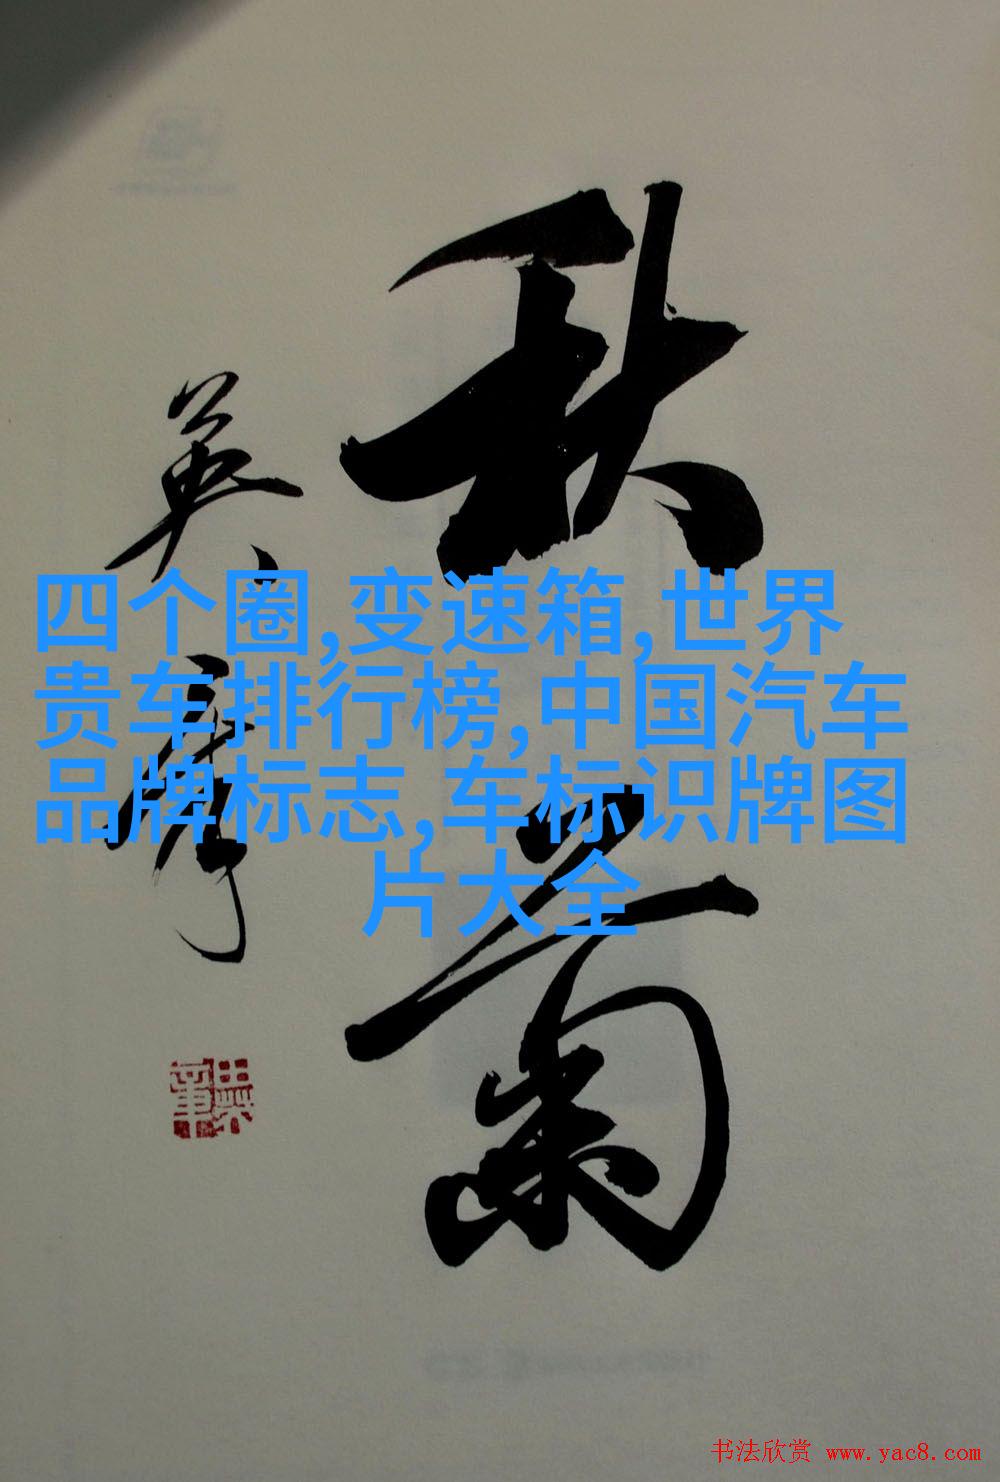 秋菊
英章
四个圈,变速箱,世界
贵车排行榜,中国汽车
品牌标志,车标识牌图
片大全
书法欣赏 www.yac8.com